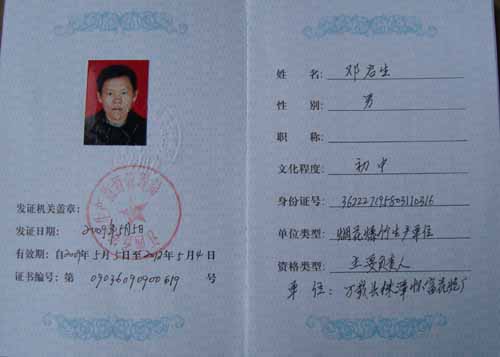 发证机关盖章：
发证日期：2009年5月5日
有效期：自2009年5月5日至2012年5月4日
证书编号：第 09036090900619 号
姓 名：邓启生
性 别：男
职 称：
文化程度：初中
身份证号：362227195503110316
单位类型：烟花爆竹生产单位
资格类型：主要负责人
单 位：万载县株潭 花炮厂